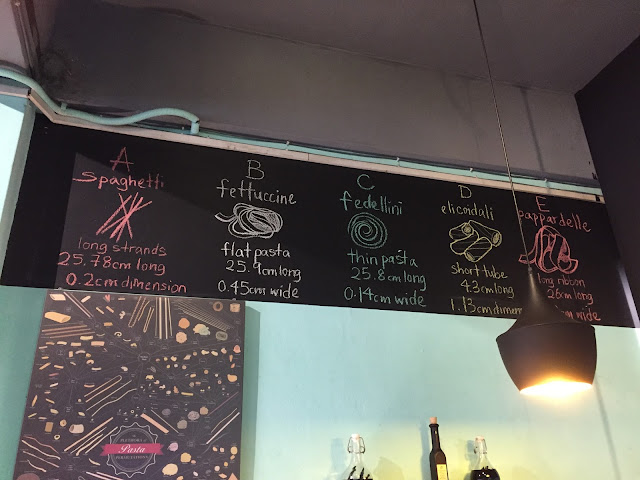 A
Spaghetti
long strands
25.78cm long
0.2cm dimension
B
fettuccine
flat pasta
25.4cm long
0.45cm wide
C
fedellini
thin pasta
25.8cm long
0.14cm wide
D
elicoidali
short tube
4.3cm long
1.13cm
E
pappardelle
long ribbon
26cm long
wide
Pasta